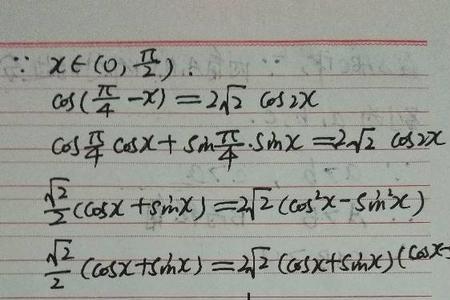 ∵ x∈(0, π/2).
cos(π/4 - x) = 2√2 cos2x
cosπ/4 cosx + sinπ/4·sinx = 2√2 cos2x
√2/2 (cosx + sinx) = 2√2 (cos²x - sin²x)
√2/2 (cosx + sinx) = 2√2 (cosx + sinx)(cosx -